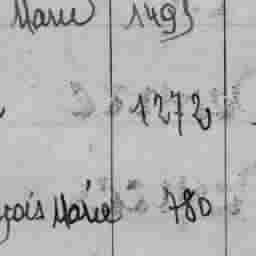 Marie 1495
1272
çois Marie 780